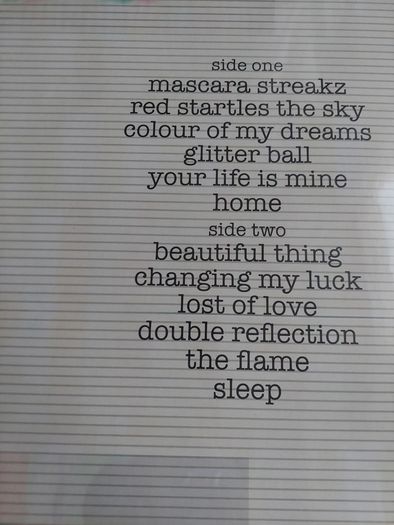 side one
mascara streakz
red startles the sky
colour of my dreams
glitter ball
your life is mine
home
side two
beautiful thing
changing my luck
lost of love
double reflection
the flame
sleep